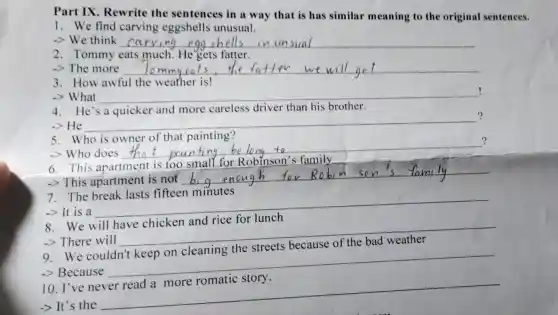 Part IX. Rewrite the sentences in a way that is has similar meaning to the original sentences.
1. We find carving eggshells unusual.
-> We think carving eggshells in unsual
2. Tommy eats much. He gets fatter.
-> The more Tommy eats, the fatter we will get
3. How awful the weather is!
-> What !
4. He's a quicker and more careless driver than his brother.
-> He ?
5. Who is owner of that painting?
-> Who does that painting belong to ?
6. This apartment is too small for Robinson's family
-> This apartment is not big enough for Robin son's family
7. The break lasts fifteen minutes
-> It is a
8. We will have chicken and rice for lunch
-> There will
9. We couldn't keep on cleaning the streets because of the bad weather
-> Because
10. I've never read a more romatic story.
-> It's the